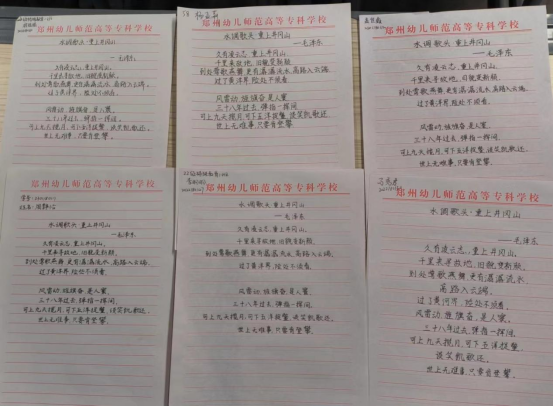 郑州幼儿师范高等专科学校
水调歌头·重上井冈山
—毛泽东
久有凌云志,重上井冈山。
千里来寻故地,旧貌变新颜。
到处莺歌燕舞,更有潺潺流水,高路入云端。
过了黄洋界,险处不须看。
风雷动,旌旗奋,是人寰。
三十八年过去,弹指一挥间。
可上九天揽月,可下五洋捉鳖,谈笑凯歌还。
世上无难事,只要肯登攀。
郑州幼儿师范高等专科学校
水调歌头·重上井冈山
—毛泽东
久有凌云志,重上井冈山。
千里来寻故地,旧貌变新颜。
到处莺歌燕舞,更有潺潺流水,高路入云端。
过了黄洋界,险处不须看。
风雷动,旌旗奋,是人寰。
三十八年过去,弹指一挥间。
可上九天揽月,可下五洋捉鳖,谈笑凯歌还。
世上无难事,只要肯登攀。
郑州幼儿师范高等专科学校
水调歌头·重上井冈山
—毛泽东
久有凌云志,重上井冈山。
千里来寻故地,旧貌变新颜。
到处莺歌燕舞,更有潺潺流水,高路入云端。
过了黄洋界,险处不须看。
风雷动,旌旗奋,是人寰。
三十八年过去,弹指一挥间。
可上九天揽月,可下五洋捉鳖,谈笑凯歌还。
世上无难事,只要肯登攀。
郑州幼儿师范高等专科学校
水调歌头·重上井冈山
—毛泽东
久有凌云志,重上井冈山。
千里来寻故地,旧貌变新颜。
到处莺歌燕舞,更有潺潺流水,高路入云端。
过了黄洋界,险处不须看。
风雷动,旌旗奋,是人寰。
三十八年过去,弹指一挥间。
可上九天揽月,可下五洋捉鳖,谈笑凯歌还。
世上无难事,只要肯登攀。
郑州幼儿师范高等专科学校
水调歌头·重上井冈山
—毛泽东
久有凌云志,重上井冈山。
千里来寻故地,旧貌变新颜。
到处莺歌燕舞,更有潺潺流水,高路入云端。
过了黄洋界,险处不须看。
风雷动,旌旗奋,是人寰。
三十八年过去,弹指一挥间。
可上九天揽月,可下五洋捉鳖,谈笑凯歌还。
世上无难事,只要肯登攀。
郑州幼儿师范高等专科学校
水调歌头·重上井冈山
—毛泽东
久有凌云志,重上井冈山。
千里来寻故地,旧貌变新颜。
到处莺歌燕舞,更有潺潺流水,
高路入云端。
过了黄河界,险处不须看。
风雷动,旌旗奋,是人寰。
三十八年过去,弹指一挥间。
可上九天揽月,可下五洋捉鳖,
谈笑凯歌还。
世上无难事,只要肯登攀。